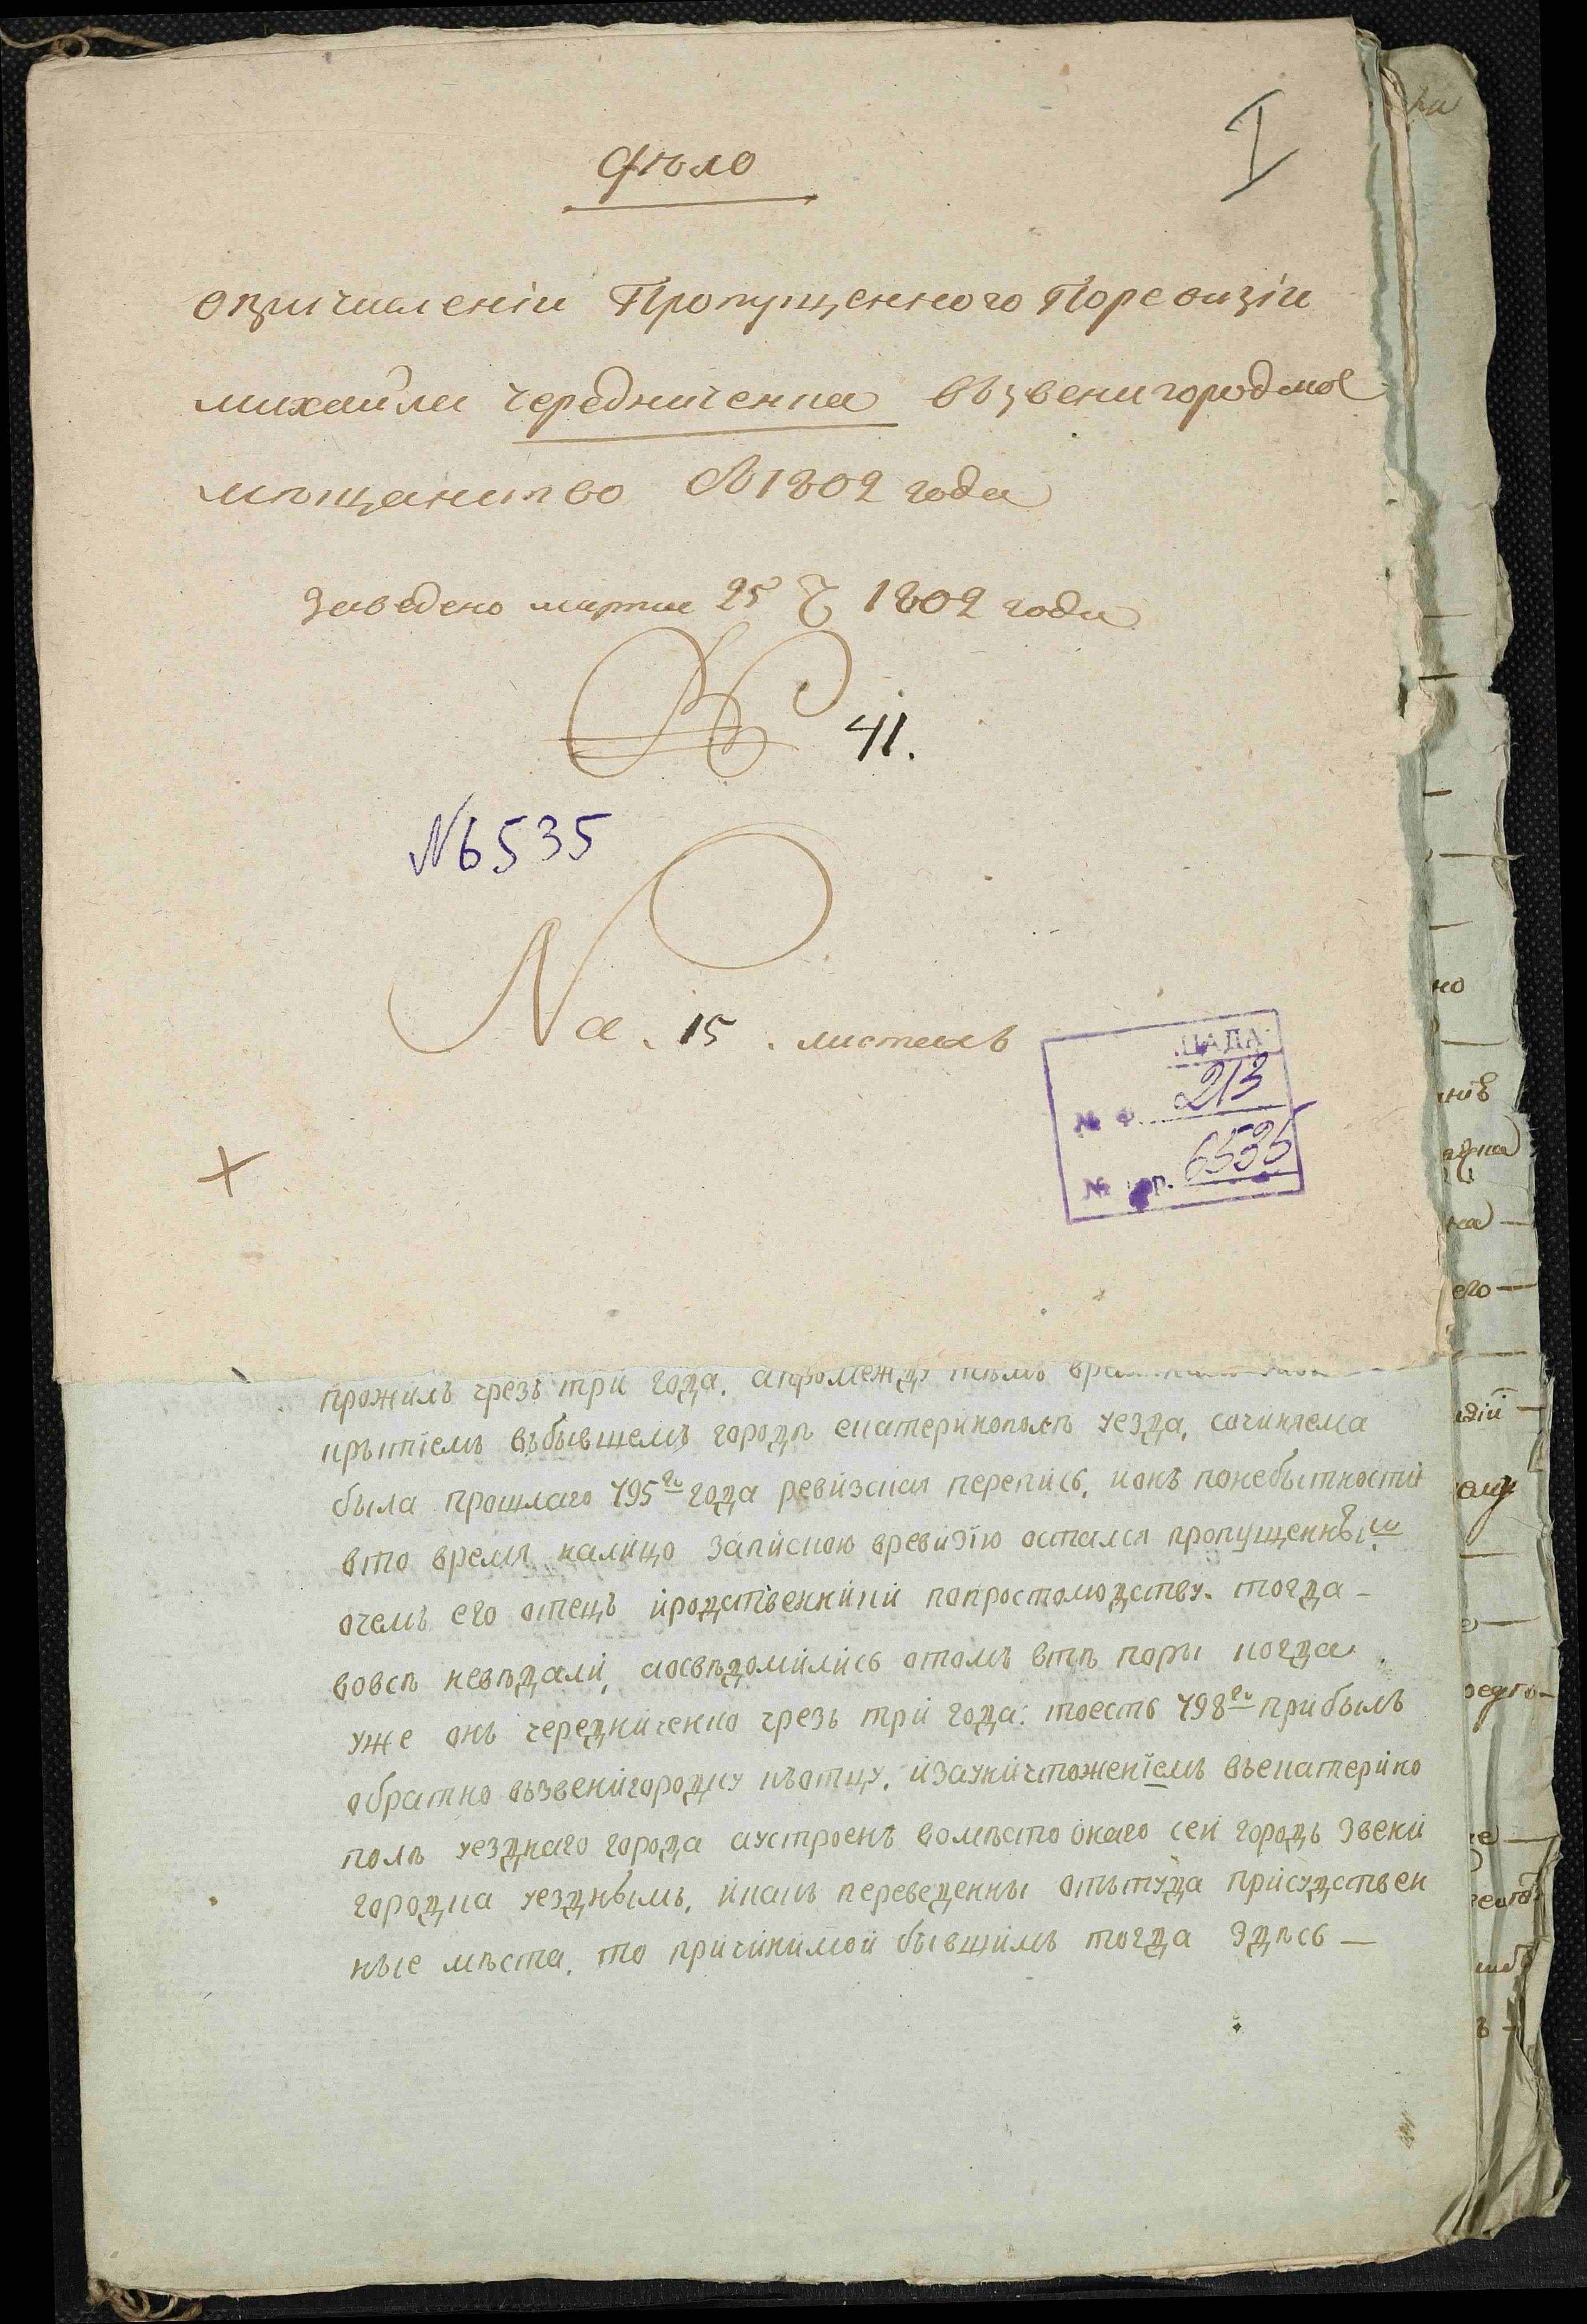 I
Дѣло
опричисленіи Пропущенного Поревизіи
михайла чередниченка въ звенигородское
мѣщанство С 1802 года
Заведено марта 25 ч 1802 года
41.
№6535
На 15 листахъ
ЦАДА
№ Ф. 213
№ ер. 6535
прожилъ чрезъ три года. апромежду тѣмъ
прытіемъ въбывшемъ городѣ екатеринополѣ уезда, сочиняема
была прошлаго 795го года ревизская перепись, ионъ понебытности
вто время налицо запискою вревизію остался пропущеннымъ
очемъ его отецъ иродственники попростолюдству. тогда
вовсѣ невѣдали, аосвѣдомились отомъ втѣ поры когда
уже онъ чередниченко чрезъ три года. тоесть 798го прибылъ
обратно възвенигородку къотцу, изауничтоженіемъ въекатерино
полѣ уезднаго города аустроенъ вомѣсто онаго сей городъ Звени
городка уезднымъ, икакъ переведенны отътуда присудствен
ные мѣста, то причинмой бывшимъ тогда здѣсь